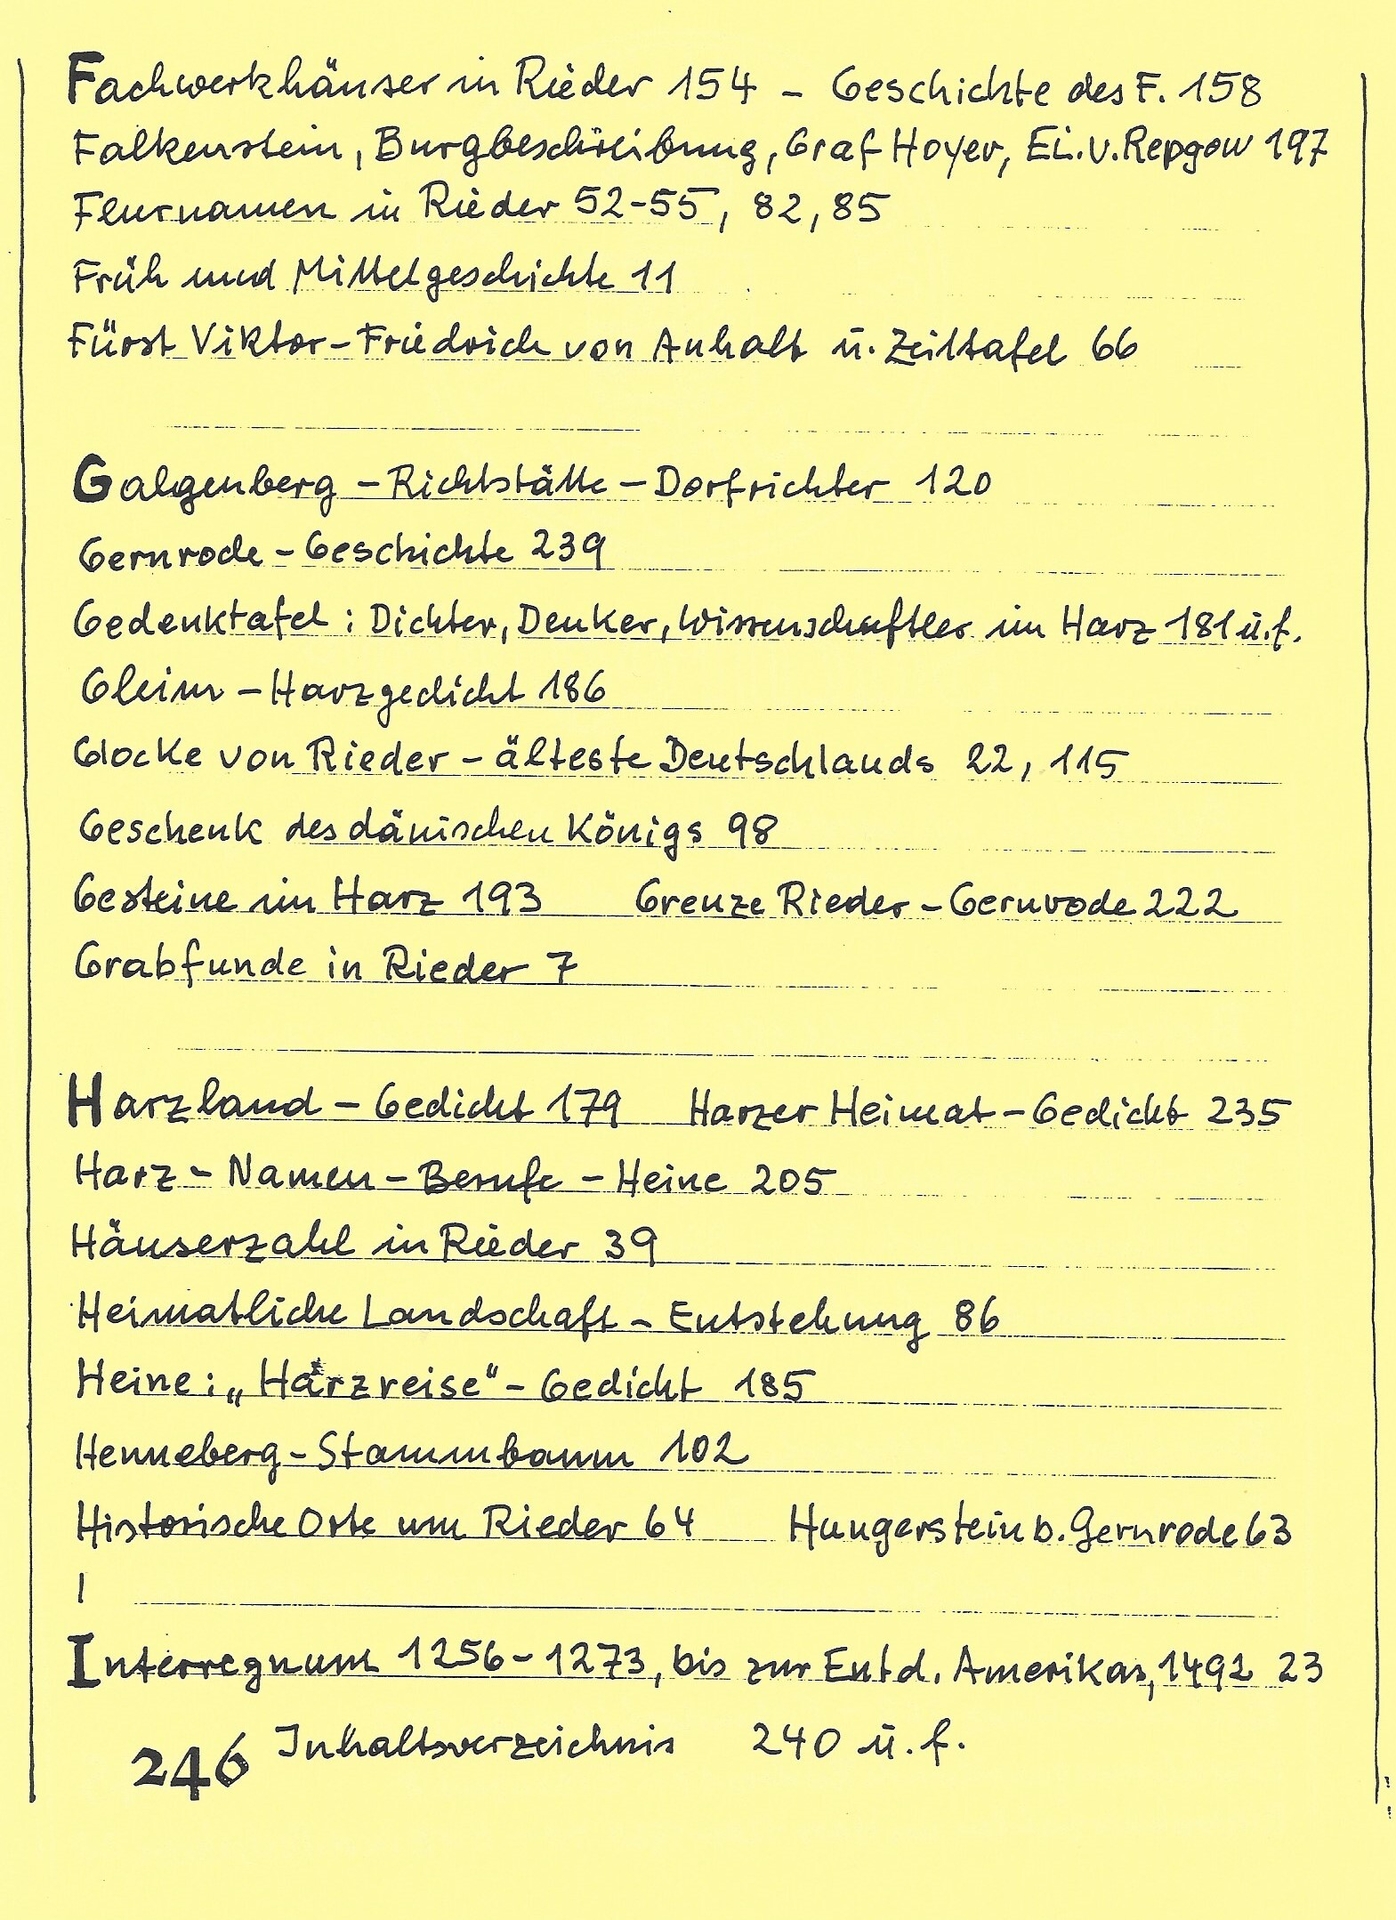 Fachwerkhäuser in Rieder 154 – Geschichte des F. 158
Falkenstein, Burgbeschreibung, Graf Hoyer, Ei.v.Repgow 197
Flurnamen in Rieder 52-55, 82, 85
Früh und Mittelgeschichte 11
Fürst Viktor-Friedrich von Anhalt u. Zeittafel 66
Galgenberg – Richtstätte – Dorfrichter 120
Gernrode – Geschichte 239
Gedenktafel : Dichter, Denker, Wissenschaftler im Harz 181 u.f.
Gleim – Harzgedicht 186
Glocke von Rieder – älteste Deutschlands 22, 115
Geschenk des dänischen Königs 98
Gesteine im Harz 193 Grenze Rieder – Gernrode 222
Grabfunde in Rieder 7
Harzland – Gedicht 179 Harzer Heimat – Gedicht 235
Harz – Namen – Berufe – Heine 205
Häuserzahl in Rieder 39
Heimatliche Landschaft – Entstehung 86
Heine : „Harzreise“ – Gedicht 185
Henneberg – Stammbaum 102
Historische Orte um Rieder 64 Hungerstein b. Gernrode 63
I
Interregnum 1256 – 1273, bis zur Entd. Amerikas, 1492 23
246 Inhaltsverzeichnis 240 u.f.